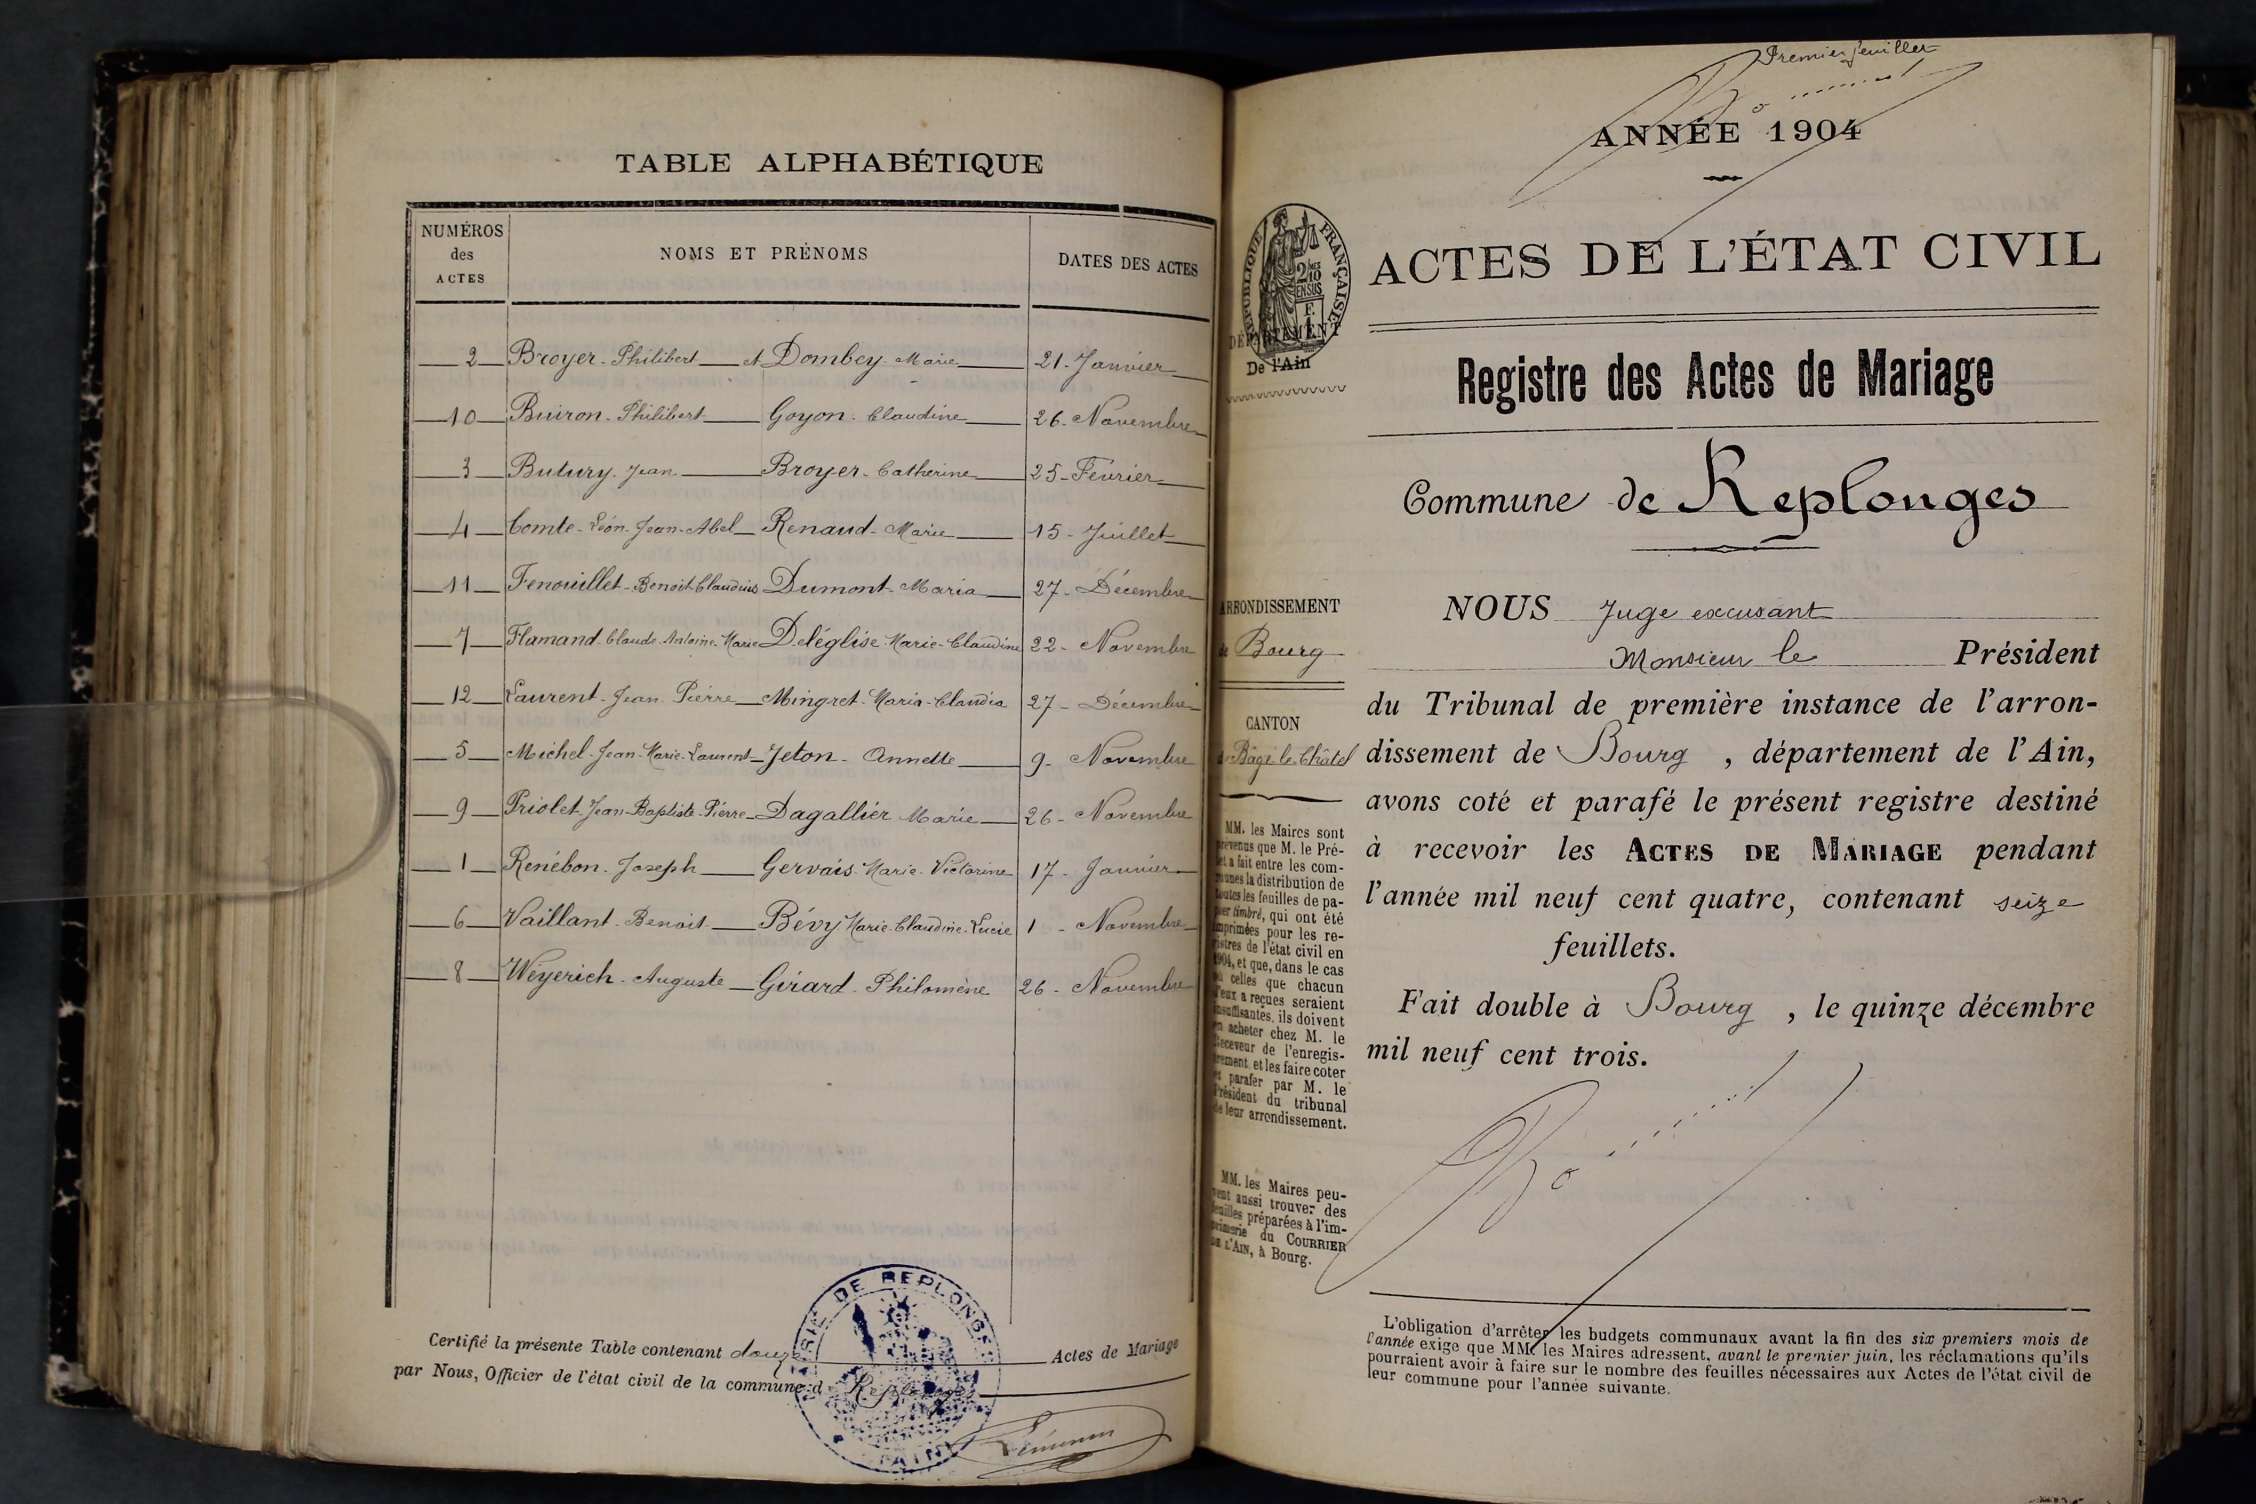 TABLE ALPHABÉTIQUE
NUMÉROS des ACTES
NOMS ET PRÉNOMS
DATES DES ACTES
2 Broyer - Philibert et Dombey - Marie 21 - Janvier
10 Buiron - Philibert Goyon - Claudine 26 - Novembre
3 Butury - Jean Broyer - Catherine 25 - Février
4 Comte - Léon - Jean - Abel Renaud - Marie 15 - Juillet
11 Fenouillet - Benoit Claudius Dumont - Maria 27 - Décembre
7 Flamand - Claude - Antoine - Marie Deléglise - Marie - Claudine 22 - Novembre
12 Laurent - Jean Pierre Mingret - Maria - Claudia 27 - Décembre
5 Michel - Jean - Marie - Laurent Jeton - Annette 9 - Novembre
9 Priolet - Jean - Baptiste - Pierre Dagallier Marie 26 - Novembre
1 Renébon - Joseph Gervais - Marie - Victorine 17 - Janvier
6 Vaillant - Benoit Bévy Marie - Claudine - Lucie 1 - Novembre
8 Weyerich - Auguste Girard - Philomène 26 - Novembre
Certifié la présente Table contenant douze Actes de Mariage
par Nous, Officier de l'état civil de la commune d Replonges
MAIRIE DE REPLONGES
AIN
Premier feuillet
ANNÉE 1904
RÉPUBLIQUE FRANÇAISE
2 MES 10 EN SUS
F. 1
DÉPARTEMENT
De l'Ain
ACTES DE L'ÉTAT CIVIL
Registre des Actes de Mariage
Commune de Replonges
ARRONDISSEMENT
de Bourg
CANTON
de Bâgé le Châtel
MM. les Maires sont
prévenus que M. le Pré-
fet a fait entre les com-
munes la distribution de
toutes les feuilles de pa-
pier timbré, qui ont été
imprimées pour les re-
gistres de l'état civil en
1904, et que, dans le cas
où celles que chacun
d'eux a reçues seraient
insuffisantes, ils doivent
en acheter chez M. le
Receveur de l'enregis-
trement et les faire coter
et parafer par M. le
Président du tribunal
de leur arrondissement.
MM. les Maires peu-
vent aussi trouver des
feuilles préparées à l'im-
primerie du COURRIER
DE L'AIN, à Bourg.
NOUS Juge excusant
Monsieur le Président
du Tribunal de première instance de l'arron-
dissement de Bourg , département de l'Ain,
avons coté et parafé le présent registre destiné
à recevoir les ACTES DE MARIAGE pendant
l'année mil neuf cent quatre, contenant seize
feuillets.
Fait double à Bourg , le quinze décembre
mil neuf cent trois.
L'obligation d'arrêter les budgets communaux avant la fin des six premiers mois de
l'année exige que MM. les Maires adressent, avant le premier juin, les réclamations qu'ils
pourraient avoir à faire sur le nombre des feuilles nécessaires aux Actes de l'état civil de
leur commune pour l'année suivante.